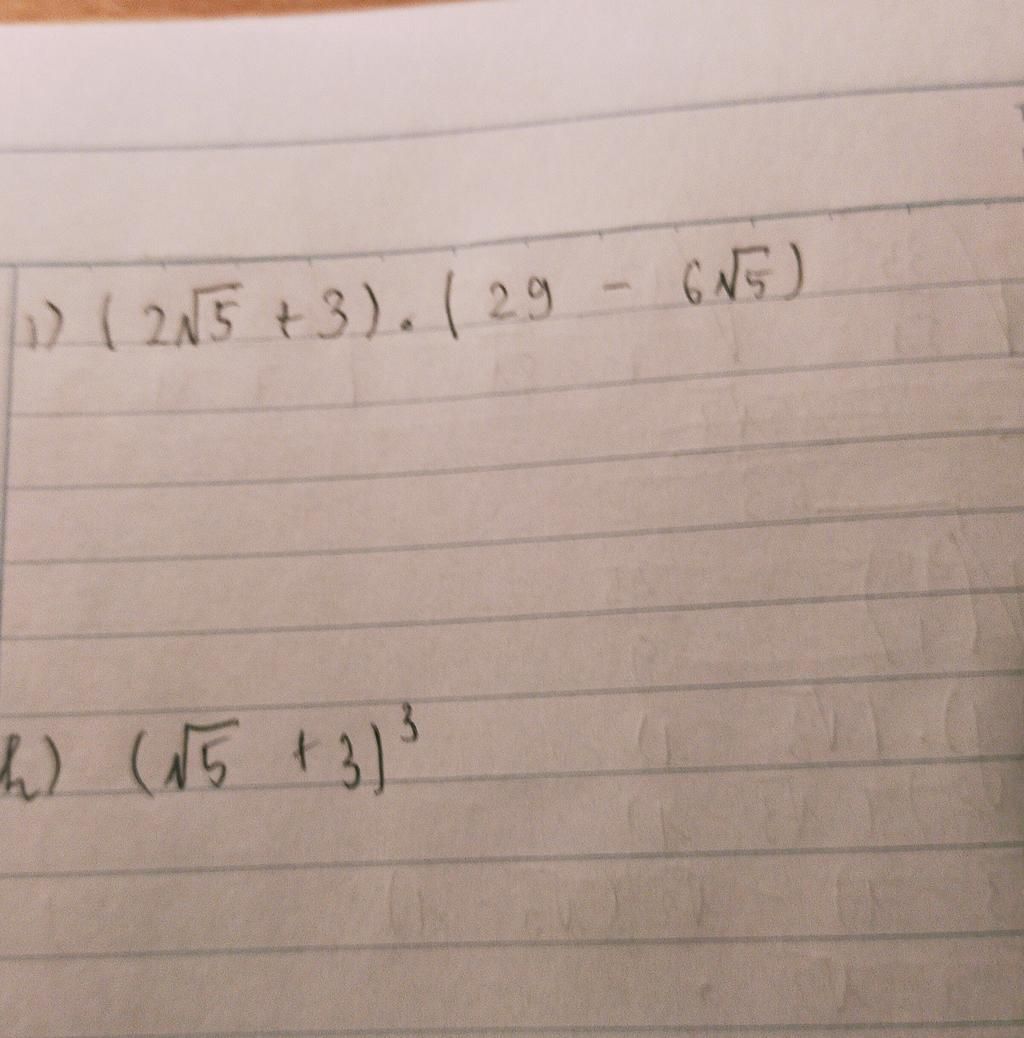 i) (2√5 + 3) . (29 - 6√5)
h) (√5 + 3)³